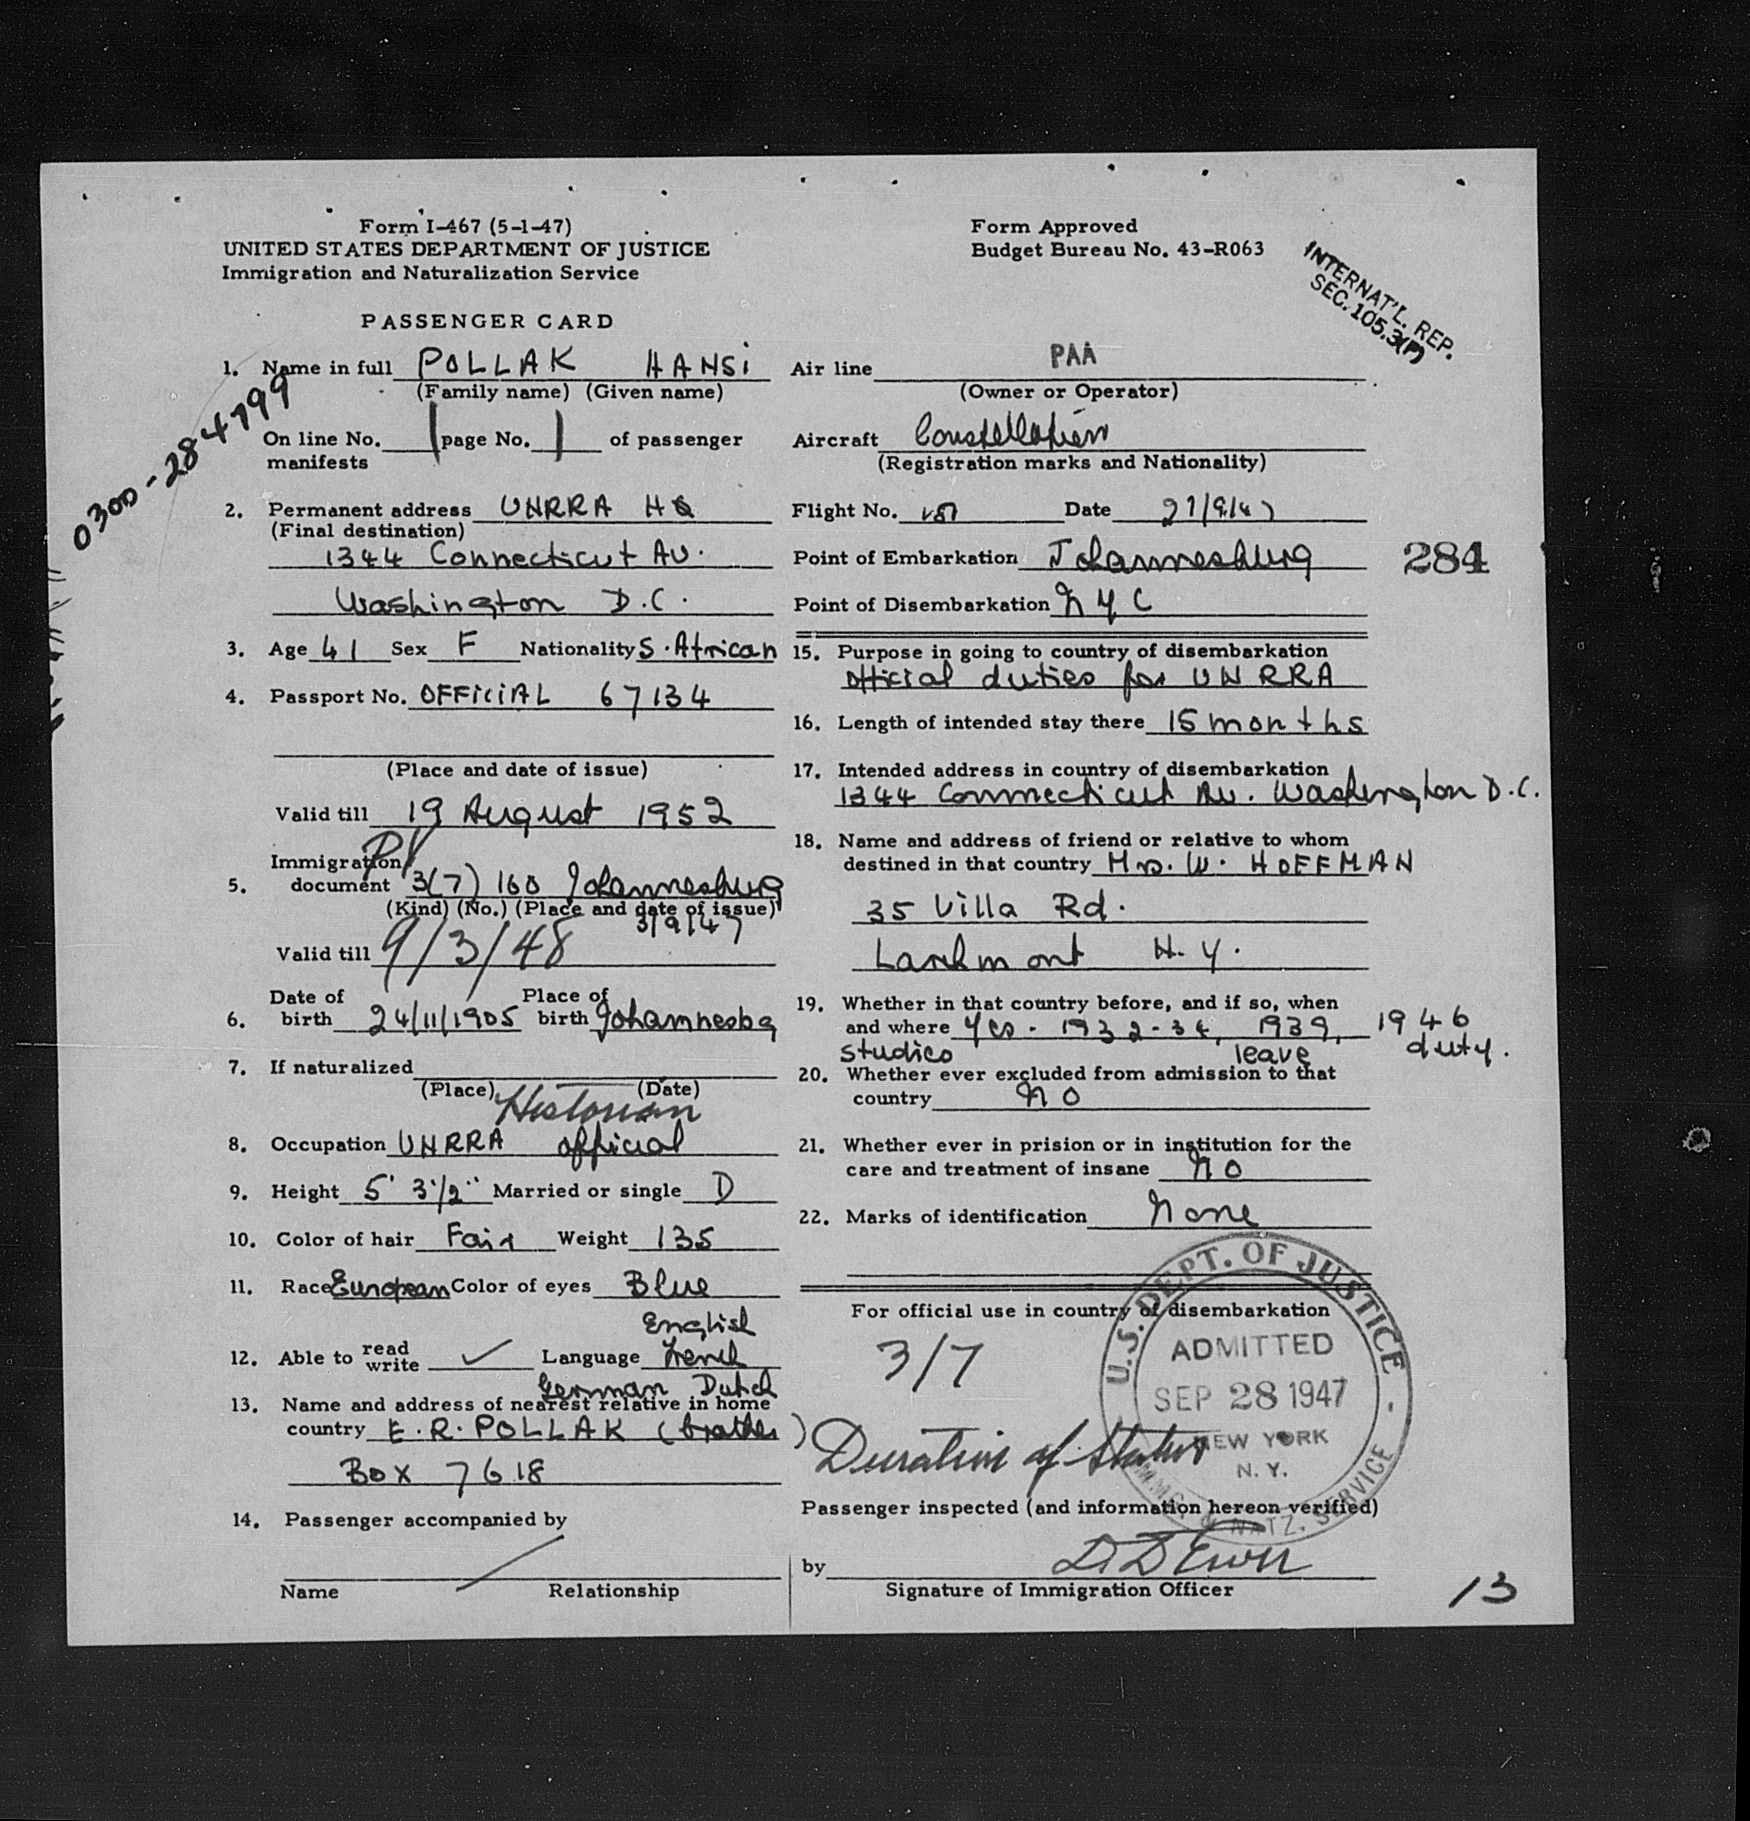 Form I-467 (5-1-47)
UNITED STATES DEPARTMENT OF JUSTICE
Immigration and Naturalization Service
Form Approved
Budget Bureau No. 43-R063
INTERNAT'L. REP.
SEC. 105.3(P)
PASSENGER CARD
0300-284799
1. Name in full POLLAK HANSi
(Family name) (Given name)
On line No. 1 page No. 1 of passenger
manifests
2. Permanent address UNRRA HQ
(Final destination)
1344 Connecticut Av.
Washington D.C.
3. Age 41 Sex F Nationality S. African
4. Passport No. OFFICIAL 67134
(Place and date of issue)
Valid till 19 August 1952
Immigration
5. document 3(7) 160 Johannesburg
(Kind) (No.) (Place and date of issue)
3/9/47
Valid till 9/3/48
Date of Place of
6. birth 24/11/1905 birth Johannesbg
7. If naturalized
(Place) (Date)
Historian
8. Occupation UNRRA official
9. Height 5' 3½" Married or single D
10. Color of hair Fair Weight 135
11. Race European Color of eyes Blue
English
12. Able to read write ✓ Language French
German Dutch
13. Name and address of nearest relative in home
country E.R. POLLAK (brother)
Box 7618
14. Passenger accompanied by
Name Relationship
Air line PAA
(Owner or Operator)
Aircraft Constellation
(Registration marks and Nationality)
Flight No. Date 27/9/47
Point of Embarkation Johannesburg
284
Point of Disembarkation NYC
15. Purpose in going to country of disembarkation
official duties for UNRRA
16. Length of intended stay there 15 months
17. Intended address in country of disembarkation
1344 Connecticut Av. Washington D.C.
18. Name and address of friend or relative to whom
destined in that country Mrs. W. HOFFMAN
35 Villa Rd.
Larchmont N.Y.
19. Whether in that country before, and if so, when
and where Yes - 1932-34, 1939, 1946
studies leave duty.
20. Whether ever excluded from admission to that
country no
21. Whether ever in prision or in institution for the
care and treatment of insane no
22. Marks of identification None
For official use in country of disembarkation
3/7
Duration of Status
U.S. DEPT. OF JUSTICE
ADMITTED
SEP 28 1947
NEW YORK
N. Y.
IMMIG. & NATZ. SERVICE
Passenger inspected (and information hereon verified)
by
Signature of Immigration Officer
13